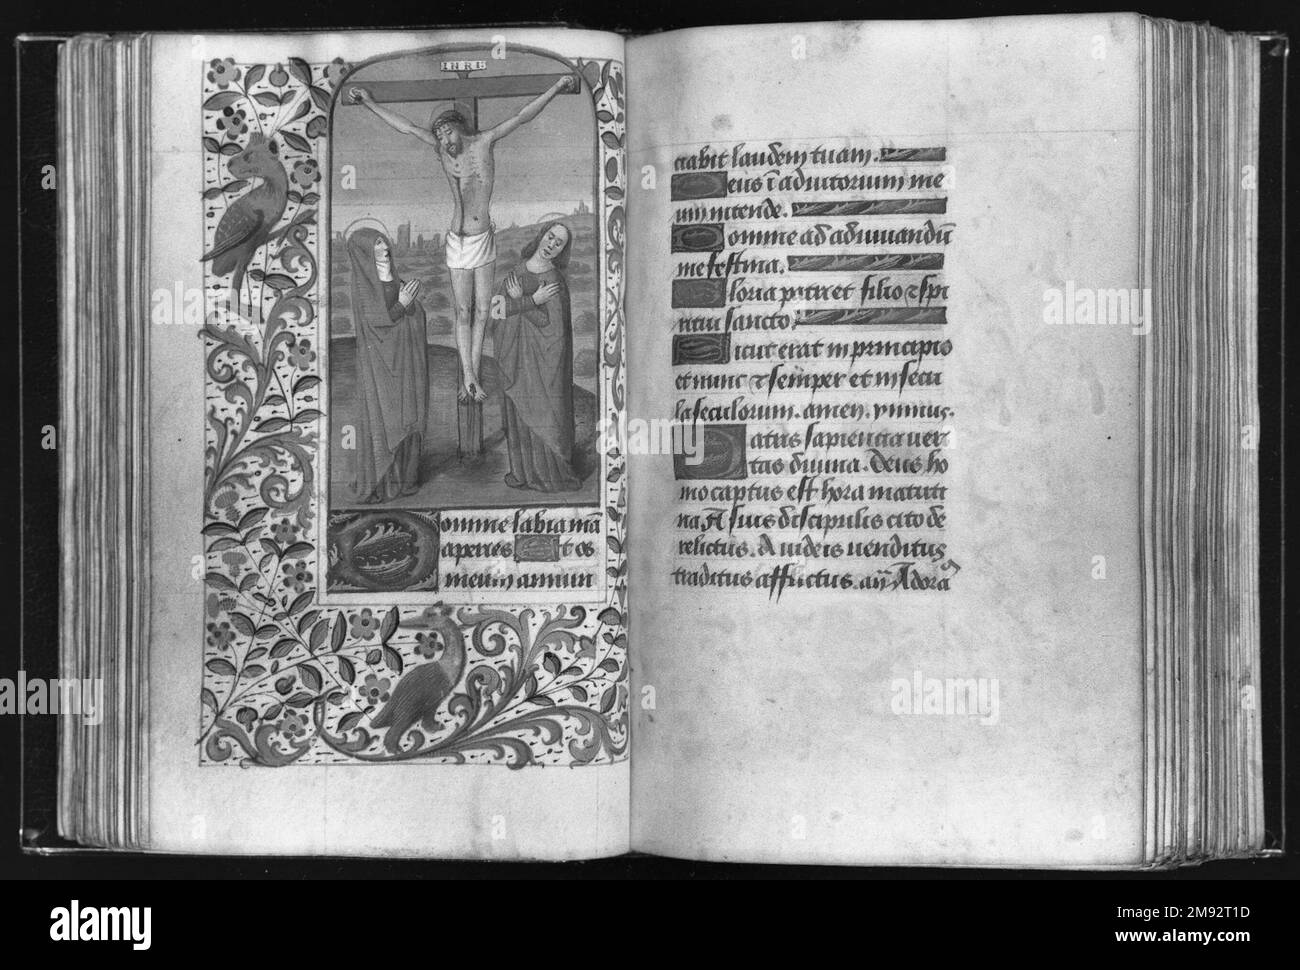 INRI
Domine labia mea
aperies Et os
meum annun
ciabit laudem tuam.
Deus ī adiutorium me
um intende.
Domine ad adiuuandū
me festina.
Gloria patri et filio et spi
ritui sancto.
Sicut erat in principio
et nunc et semper et in secu
la seculorum. amen. ymnus.
Patris sapiencia ver
itas diuina. deus ho
mo captus est hora matuti
na A suis discipulis cito de
relictus. A iudeis venditus
traditus afflictus. añ Adora
alamy
Image ID: 2M92T1D
www.alamy.com